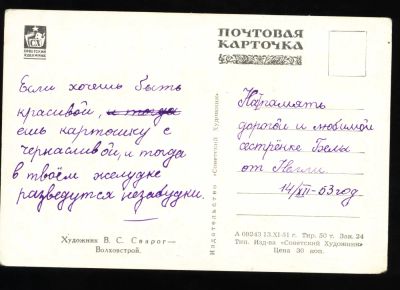 СОВЕТСКИЙ
ХУДОЖНИК
ПОЧТОВАЯ
КАРТОЧКА
Если хочешь быть
красивой, и тогда
ешь картошку с
чернасливой, и тогда
в твоём желудке
разведутся незабудки.
Художник В. С. Сварог—
Волховстрой.
Издательство «Советский Художник»
На память
дорогой и любимой
сестрёнке Бэлы
от Нелли
14/XII-53 год
А 08243 13.XI-51 г. Тир. 50 т. Зак. 24
Тип. Изд-ва «Советский Художник»
Цена 30 коп.